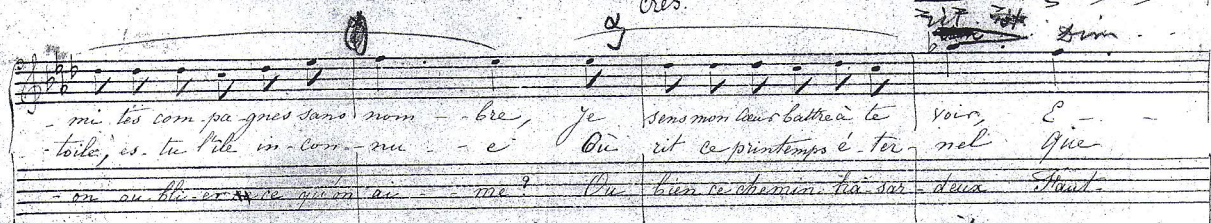 cres.
rit. Dim
- mi tes com - pa - gnes sans nom - - bre, Je sens mon cœur battre à te voir, E - -
- toile, es - tu l'île in - con - nu - - e Où rit ce printemps é - ter - nel Que
- on ou - bli - er ce qu'on ai - - me ? Ou bien ce chemin ha - sar - deux Faut -